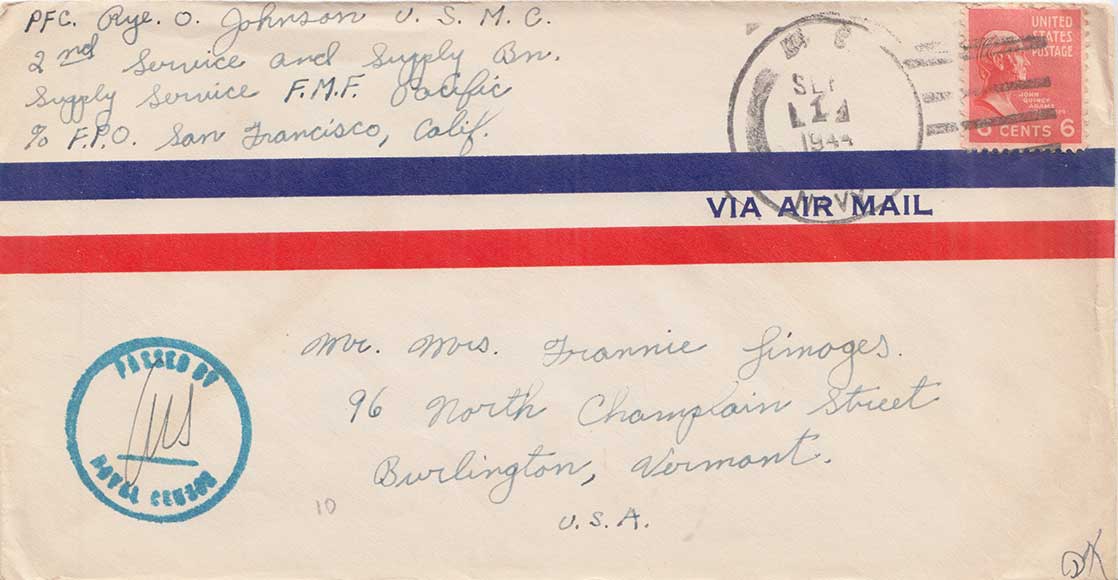 PFC. Rye. O. Johnson U. S. M. C.
2nd Service and Supply Bn.
Supply Service F.M.F. Pacific
c/o F.P.O. San Francisco, Calif.
SEP
1944
NAVY
UNITED
STATES
POSTAGE
JOHN
QUINCY
ADAMS
6 CENTS 6
VIA AIR MAIL
Mr. Mrs. Frannie Limoges.
96 North Champlain Street
Burlington, Vermont.
U.S.A.
PASSED BY
NAVAL CENSOR
10